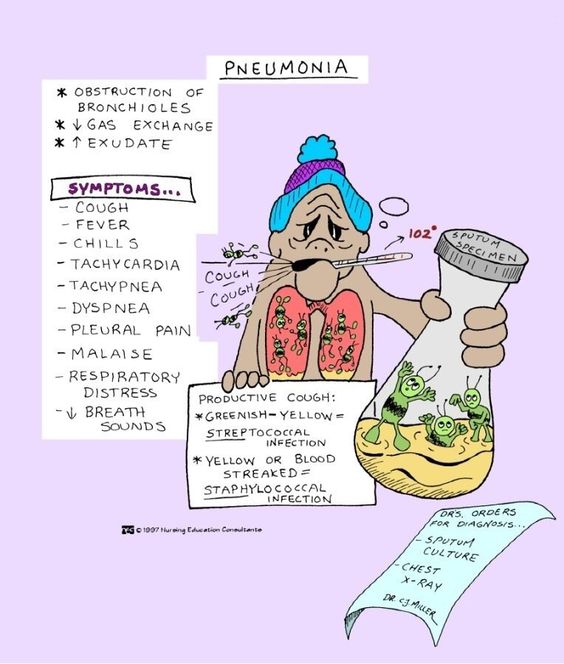 PNEUMONIA
* OBSTRUCTION OF
BRONCHIOLES
* ↓ GAS EXCHANGE
* ↑ EXUDATE
SYMPTOMS...
- COUGH
- FEVER
- CHILLS
- TACHYCARDIA
- TACHYPNEA
- DYSPNEA
- PLEURAL PAIN
- MALAISE
- RESPIRATORY
DISTRESS
- ↓ BREATH
SOUNDS
COUGH
COUGH
102°
SPUTUM
SPECIMEN
PRODUCTIVE COUGH:
* GREENISH-YELLOW =
STREPTOCOCCAL
INFECTION
* YELLOW OR BLOOD
STREAKED =
STAPHYLOCOCCAL
INFECTION
© 1997 Nursing Education Consultants
DR'S. ORDERS
FOR DIAGNOSIS...
- SPUTUM
CULTURE
- CHEST
X-RAY
DR CJ MILLER